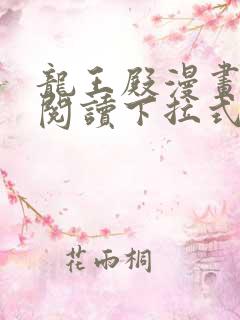 龍王殿漫畫
閱讀下拉式
花雨桐